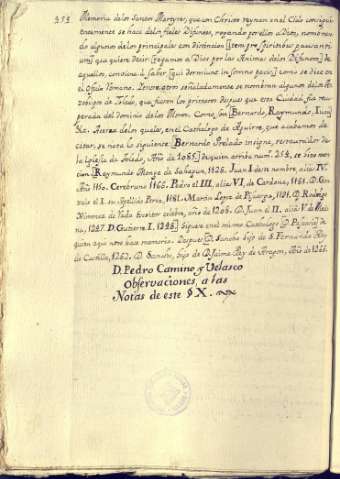 353 Memoria de los Santos Martyres, que con Christo reynan en el Cielo consiguientemente
se hace de los fieles Difuntos, rogando por ellos a Dios, nombrando
algunos de los principales con distincion [Item pro spiritibus pausantium]
que quiere decir [rogamos a Dios por las Animas de los Difuntos] de
aquellos, conviene a saber [qui dormiunt in somno pacis] como se dice en
el Oficio Romano. Pero otros señaladamente se nombran algunos de los Arzobispos
de Toledo, que fueron los primeros despues que esta Ciudad fue recuperada
del dominio de los Moros. Como son [Bernardo, Raymundo, Juan]
&a. Acerca de los quales, en el Cathalogo de Aguirre, que acabamos de
citar, se nota lo siguiente [Bernardo Prelado insigne, restaurador de
la Iglesia de Toledo, Año de 1085] de quien arriba num. 254. se hizo mencion
[Raymundo Monge de Sahagun, 1126. Juan I de este nombre, alias IV.
Año 1150. Cerebruno 1166. Pedro el III, alias VI, de Cardona, 1181. D. Gonzalo
el I. su Apellido Perez, 1182. Martin Lopez de Pisuerga, 1191. D. Rodrigo
Ximenez de Rada Escritor celebre, año de 1208. D. Juan el II. alias V. de Medina,
1247. D. Gutierre I. 1249.] Siguese en el mismo Cathalogo [D. Pasqual] de
quien aqui no se hace memoria. Despues [D. Sancho hijo de S. Fernando Rey
de Castilla, 1252. D. Sancho, hijo de D. Jaime Rey de Aragon, Año de 1266.
D. Pedro Camino y Velasco
Observaciones, a las
Notas de este § X.